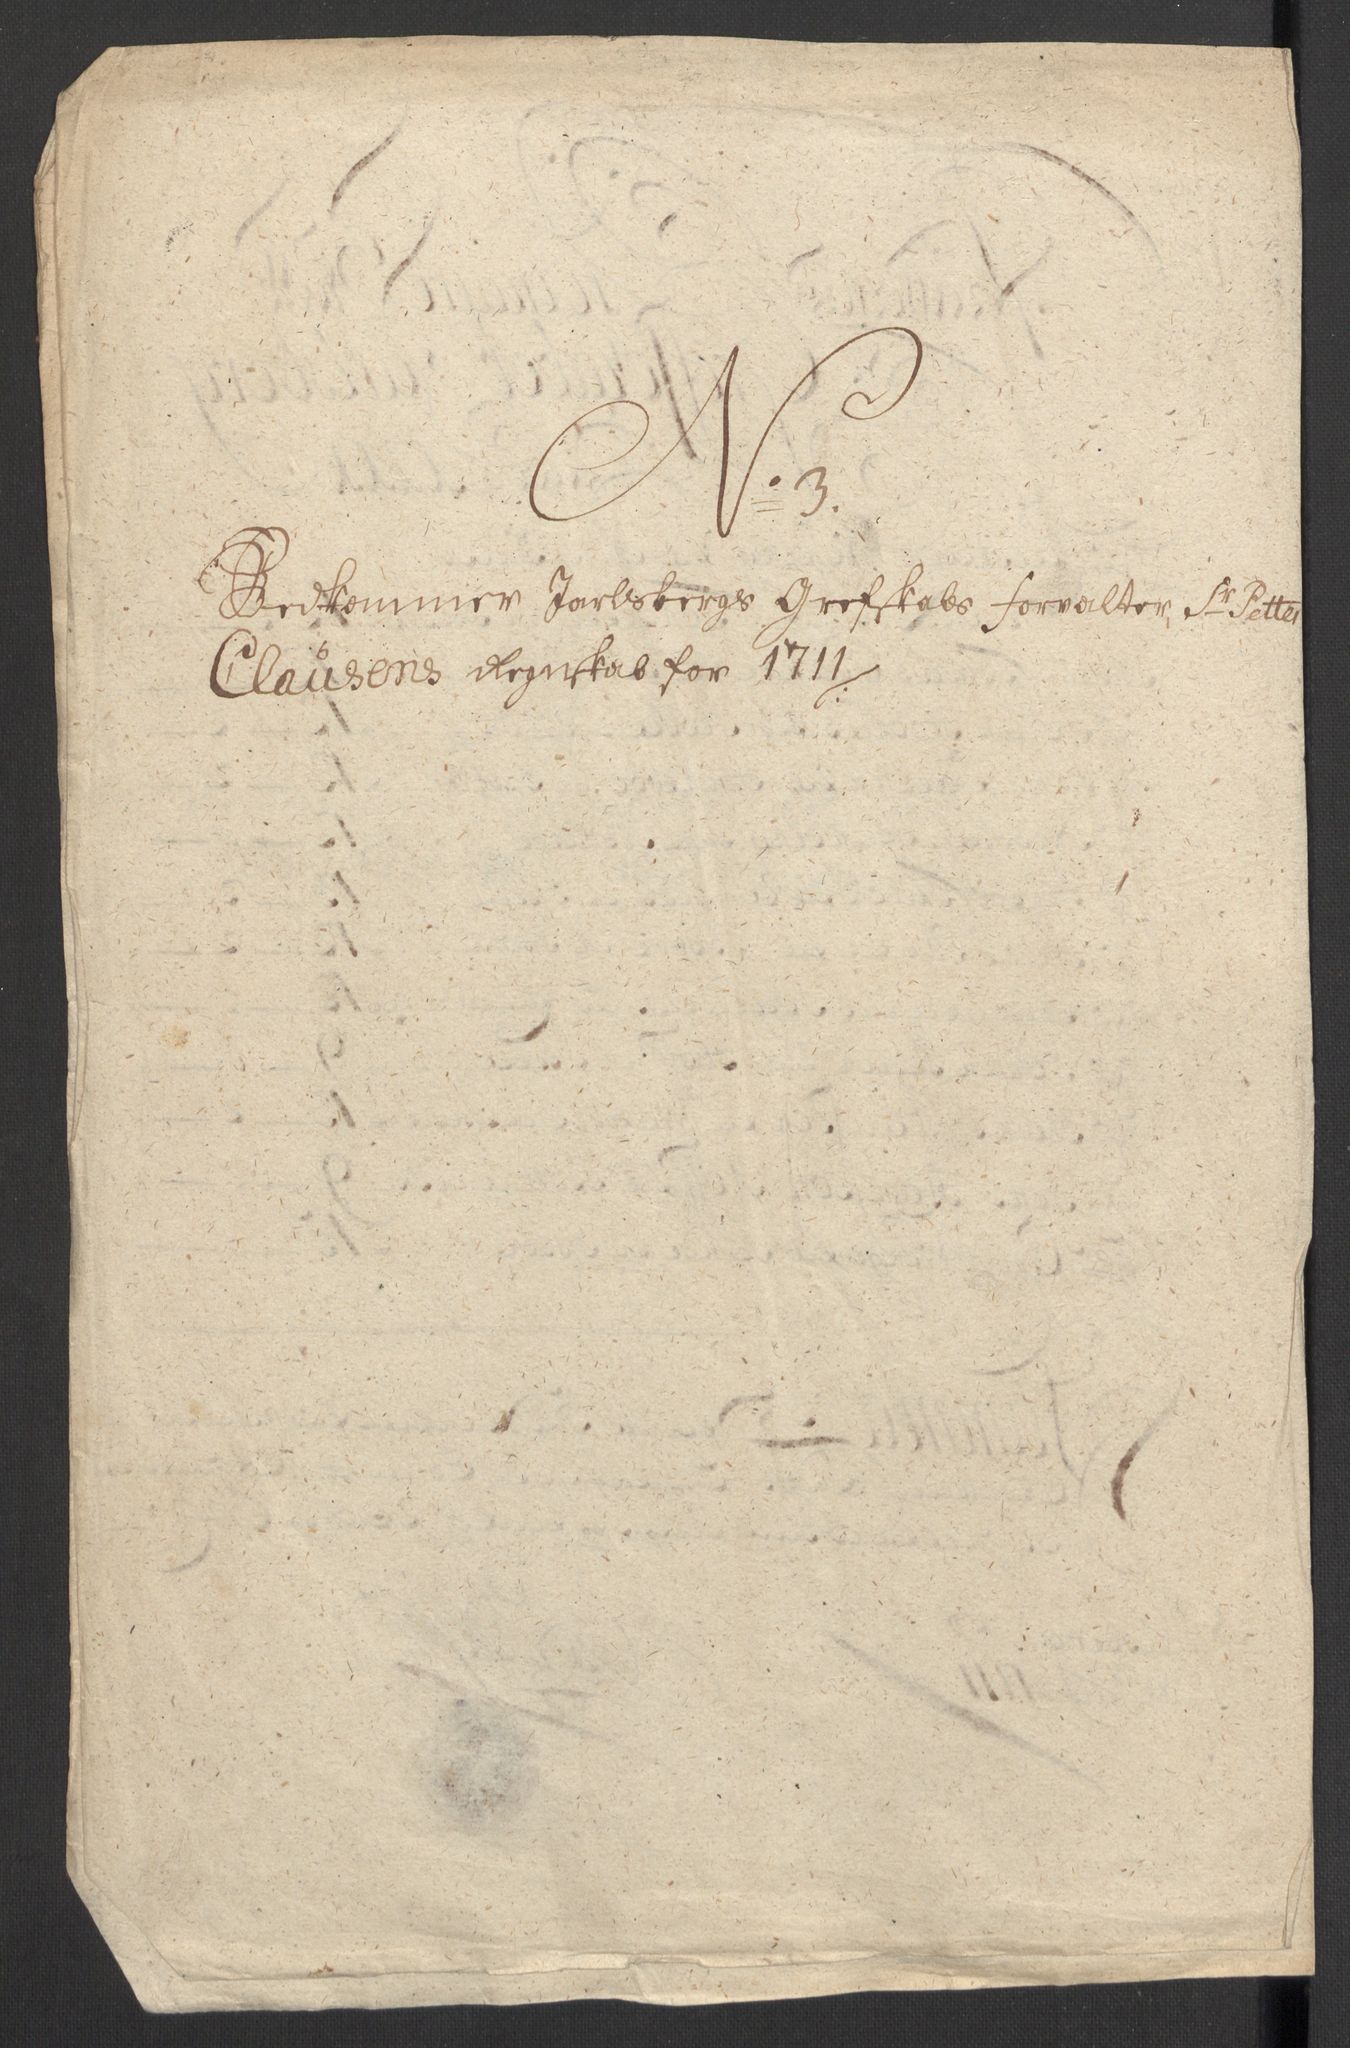 No 3.
Vedkommer Jarlsbergs Grefskabs forvalter, Sr Petter
Claùsens Regnskab for 1711